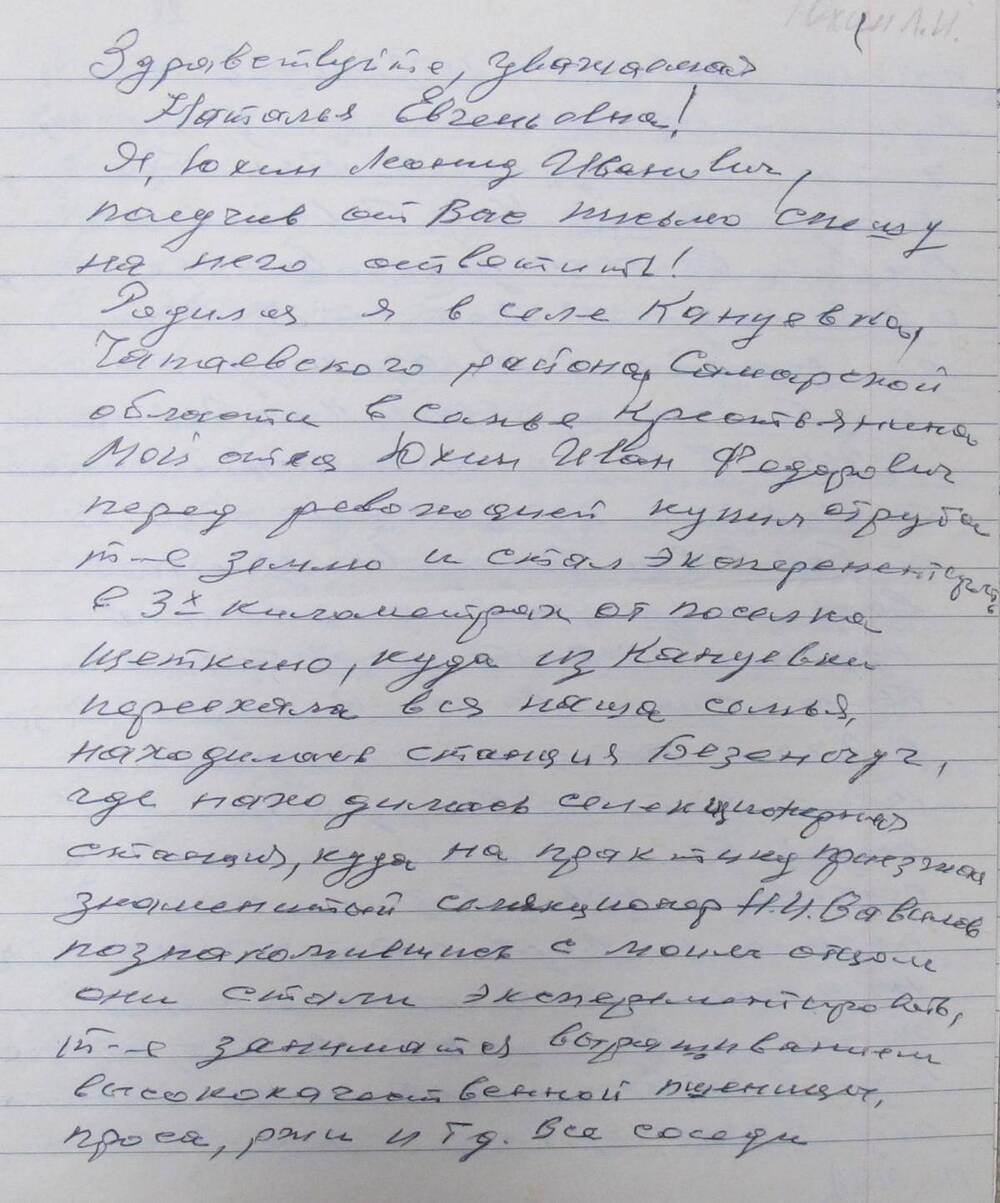 Юхин Л.И.
Здравствуйте, уважаемая
Наталья Евгеньевна!
Я, Юхин Леонид Иванович,
получив от Вас письмо спешу
на него ответить!
Родился я в селе Кануевка,
Чапаевского района, Самарской
области в семье крестьянина
Мой отец Юхин Иван Федорович
перед революцией купил отруба
т-е землю и стал
в 3х километрах от поселка
Щеткино, куда из Кануевки
переехала вся наша семья,
находилась станция Безенчуг,
где находилась селекционерная
станция, куда на практику приезжал
знаменитый селекционер Н.И. Вавилов
познакомившись с моим отцом
они стали экспериментировать,
т-е заниматся выращиванием
высококачественной пшеницы,
проса, ржи и тд. Все соседи